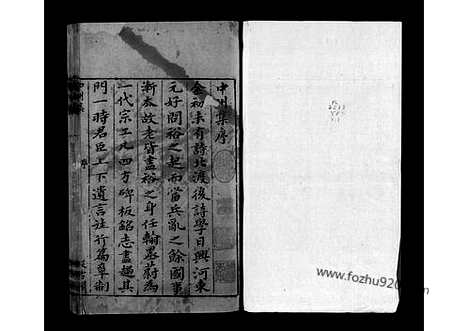 中州集序
金初未有詩北渡後詩學日興河東
元好問裕之起而當兵亂之餘國事
漸奉故老皆盡裕之身任翰墨蔚為
一代宗工凡四方碑板銘志盡趨其
門一時君臣上下遺言往行篇章制
https://www.fozhu920.com/